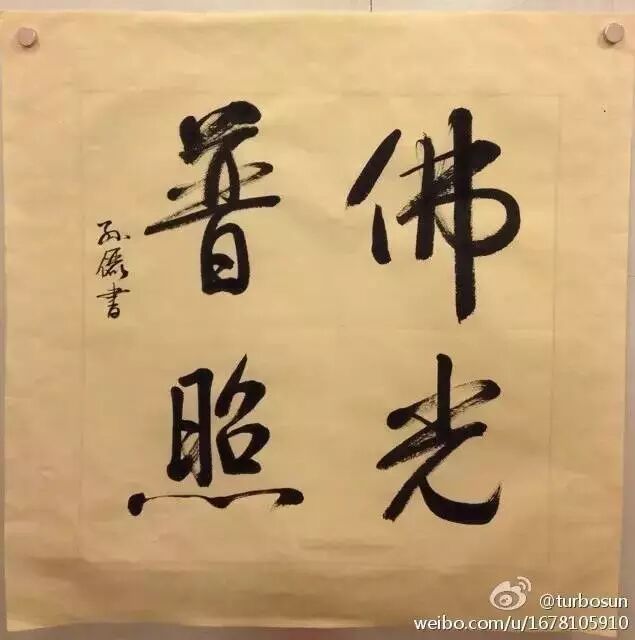 佛光
普照
孙儷書
@turbosun
weibo.com/u/1678105910